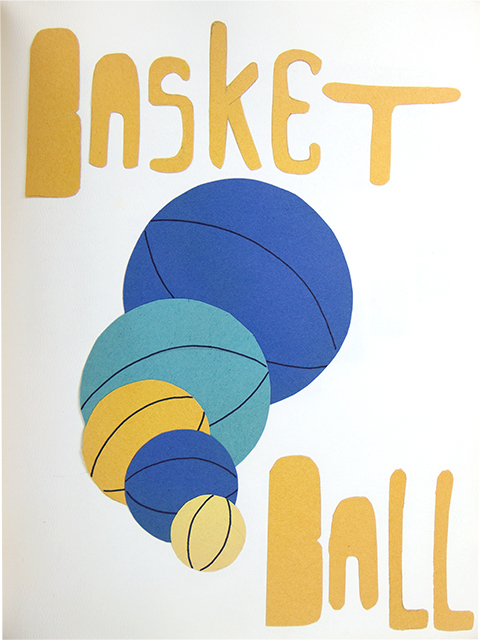 BASKET
BALL